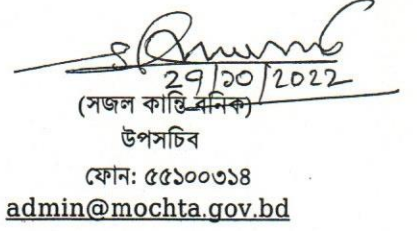 29/10/2022
(সজল কান্তি বনিক)
উপসচিব
ফোন: ৫৫১০০৩১৪
admin@mochta.gov.bd